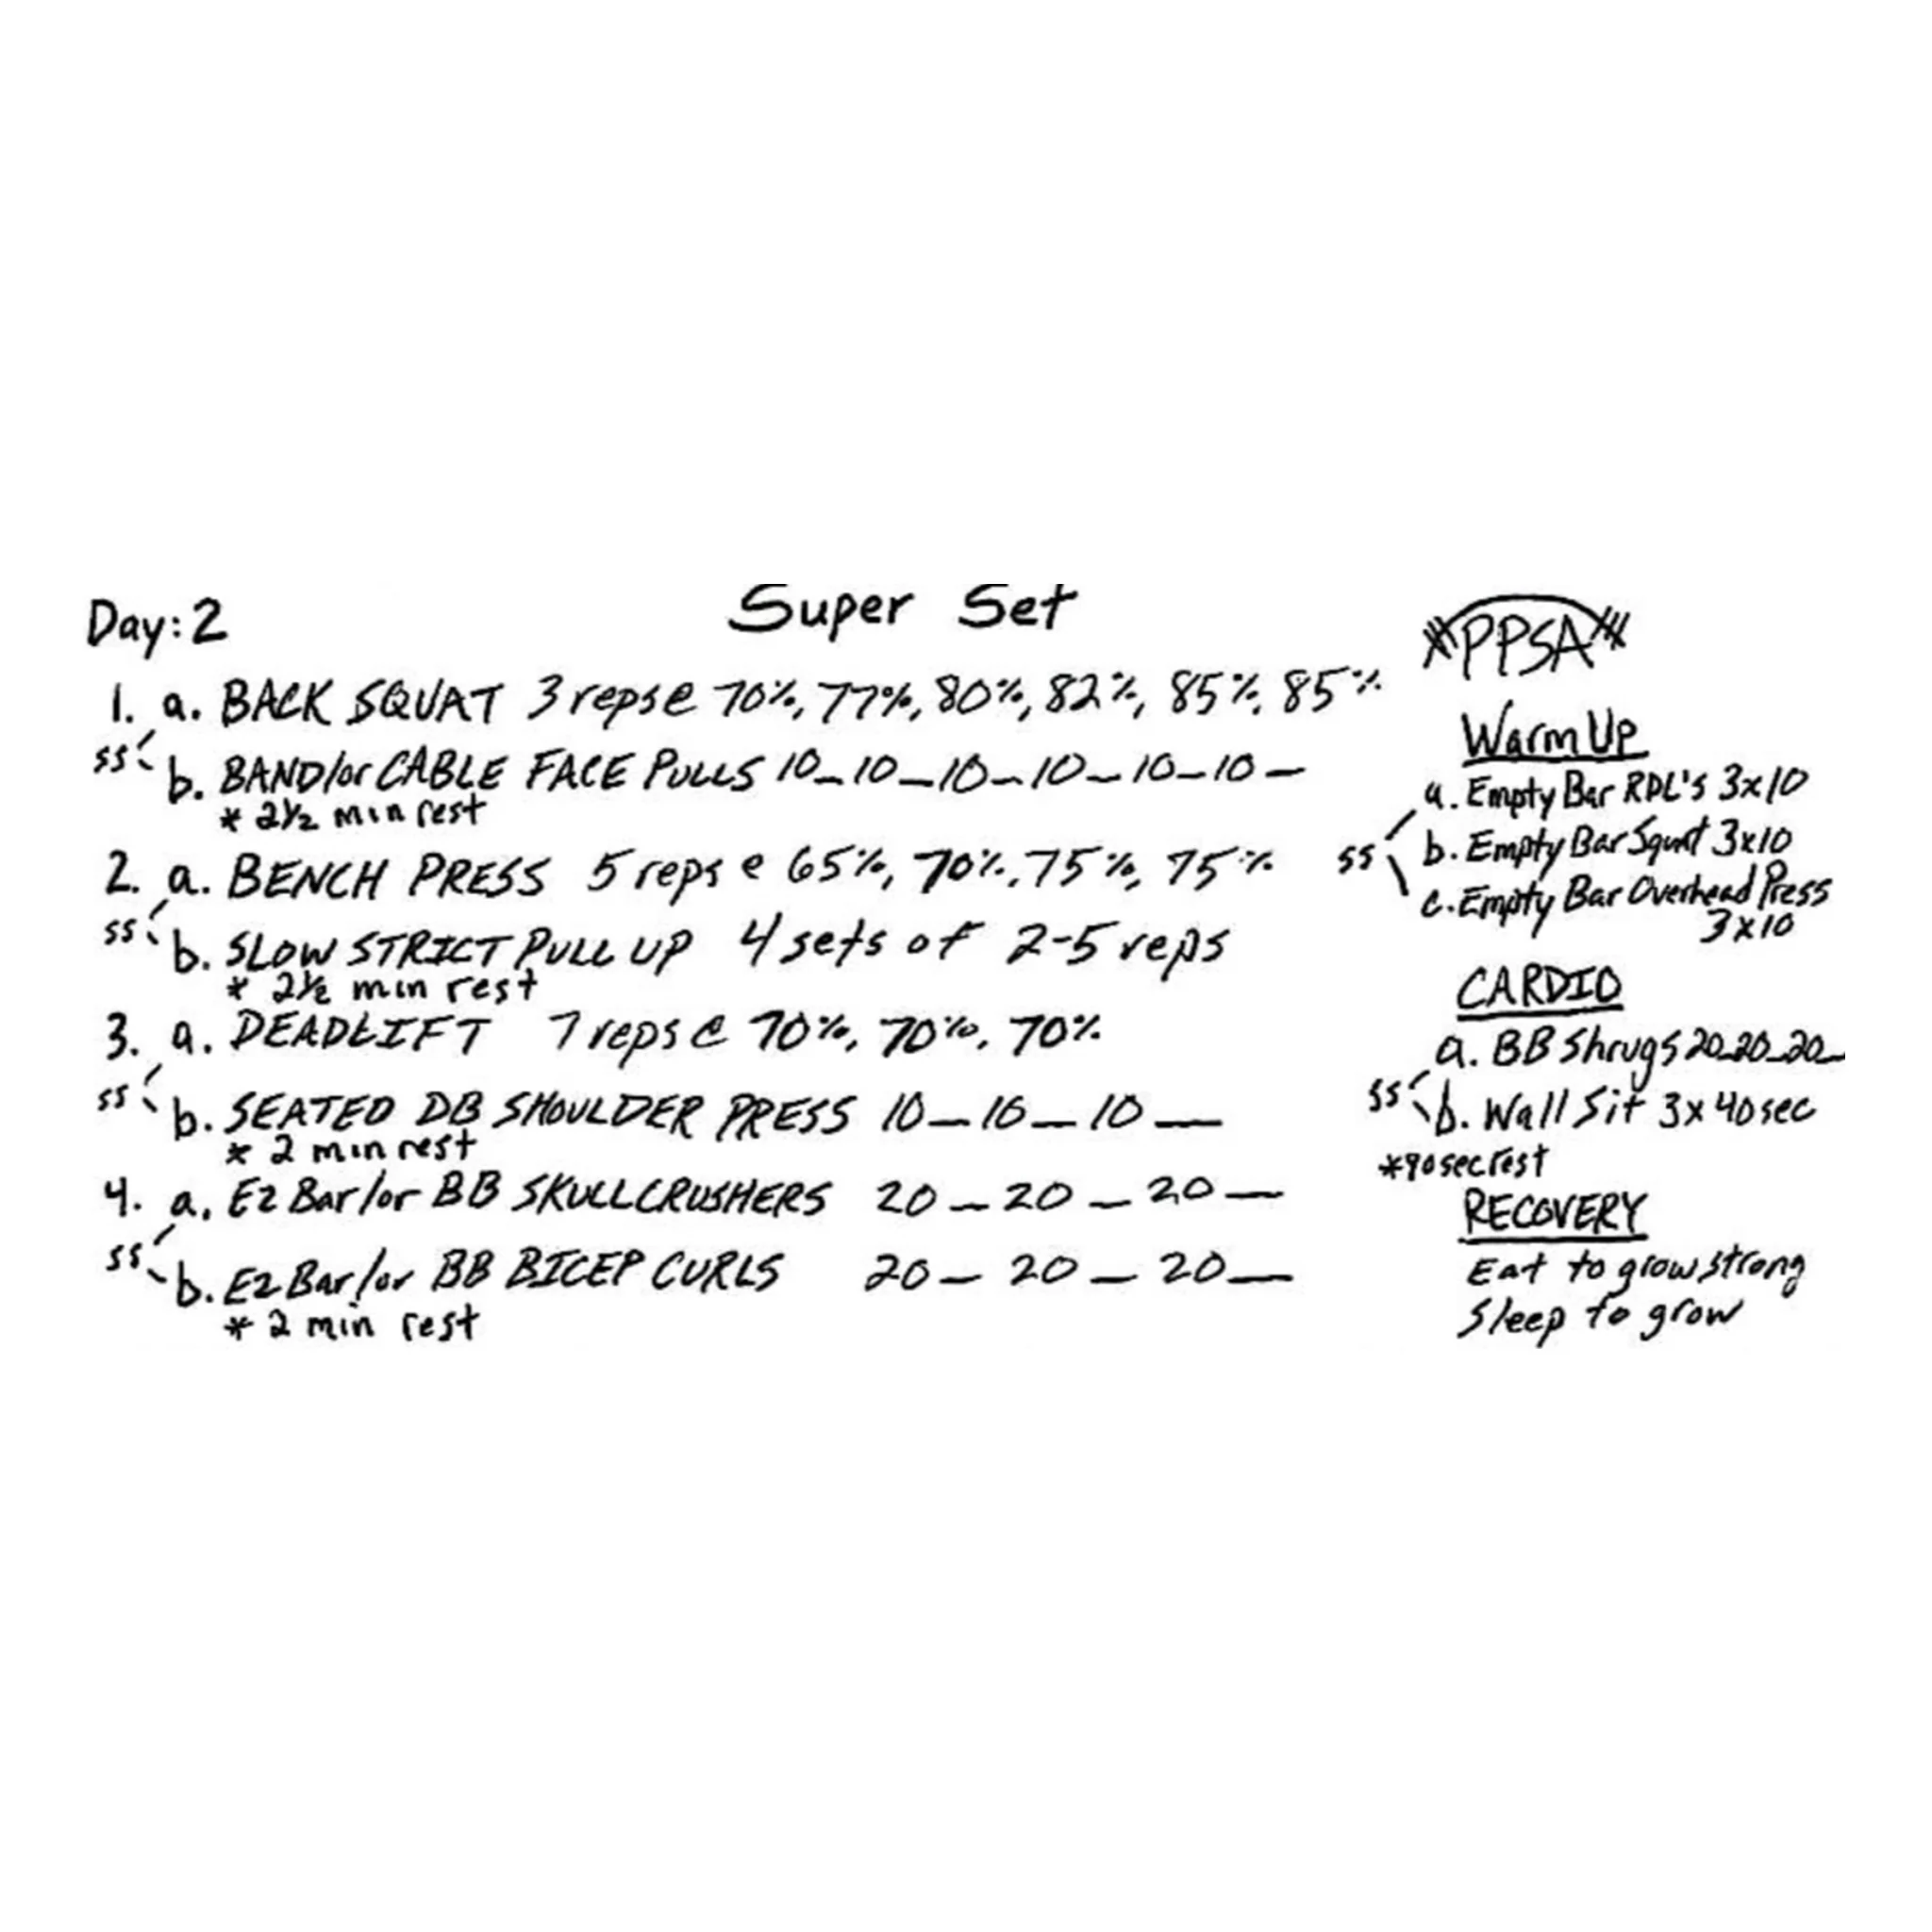 Day: 2
Super Set
1. a. BACK SQUAT 3 reps @ 70%, 77%, 80%, 82%, 85%, 85%
ss
b. BAND/or CABLE FACE PULLS 10_10_10_10_10_10_
* 2½ min rest
2. a. BENCH PRESS 5 reps @ 65%, 70%, 75%, 75%
ss
b. SLOW STRICT PULL UP 4 sets of 2-5 reps
* 2½ min rest
3. a. DEADLIFT 7 reps @ 70%, 70%, 70%
ss
b. SEATED DB SHOULDER PRESS 10_10_10_
* 2 min rest
4. a. EZ Bar/or BB SKULLCRUSHERS 20_20_20_
ss
b. EZ Bar/or BB BICEP CURLS 20_20_20_
* 2 min rest
PPSA
Warm Up
a. Empty Bar RDL's 3x10
ss b. Empty Bar Squat 3x10
c. Empty Bar Overhead Press
3x10
CARDIO
a. BB Shrugs 20_20_20_
ss
b. Wall Sit 3x40sec
*90sec rest
RECOVERY
Eat to grow strong
Sleep to grow